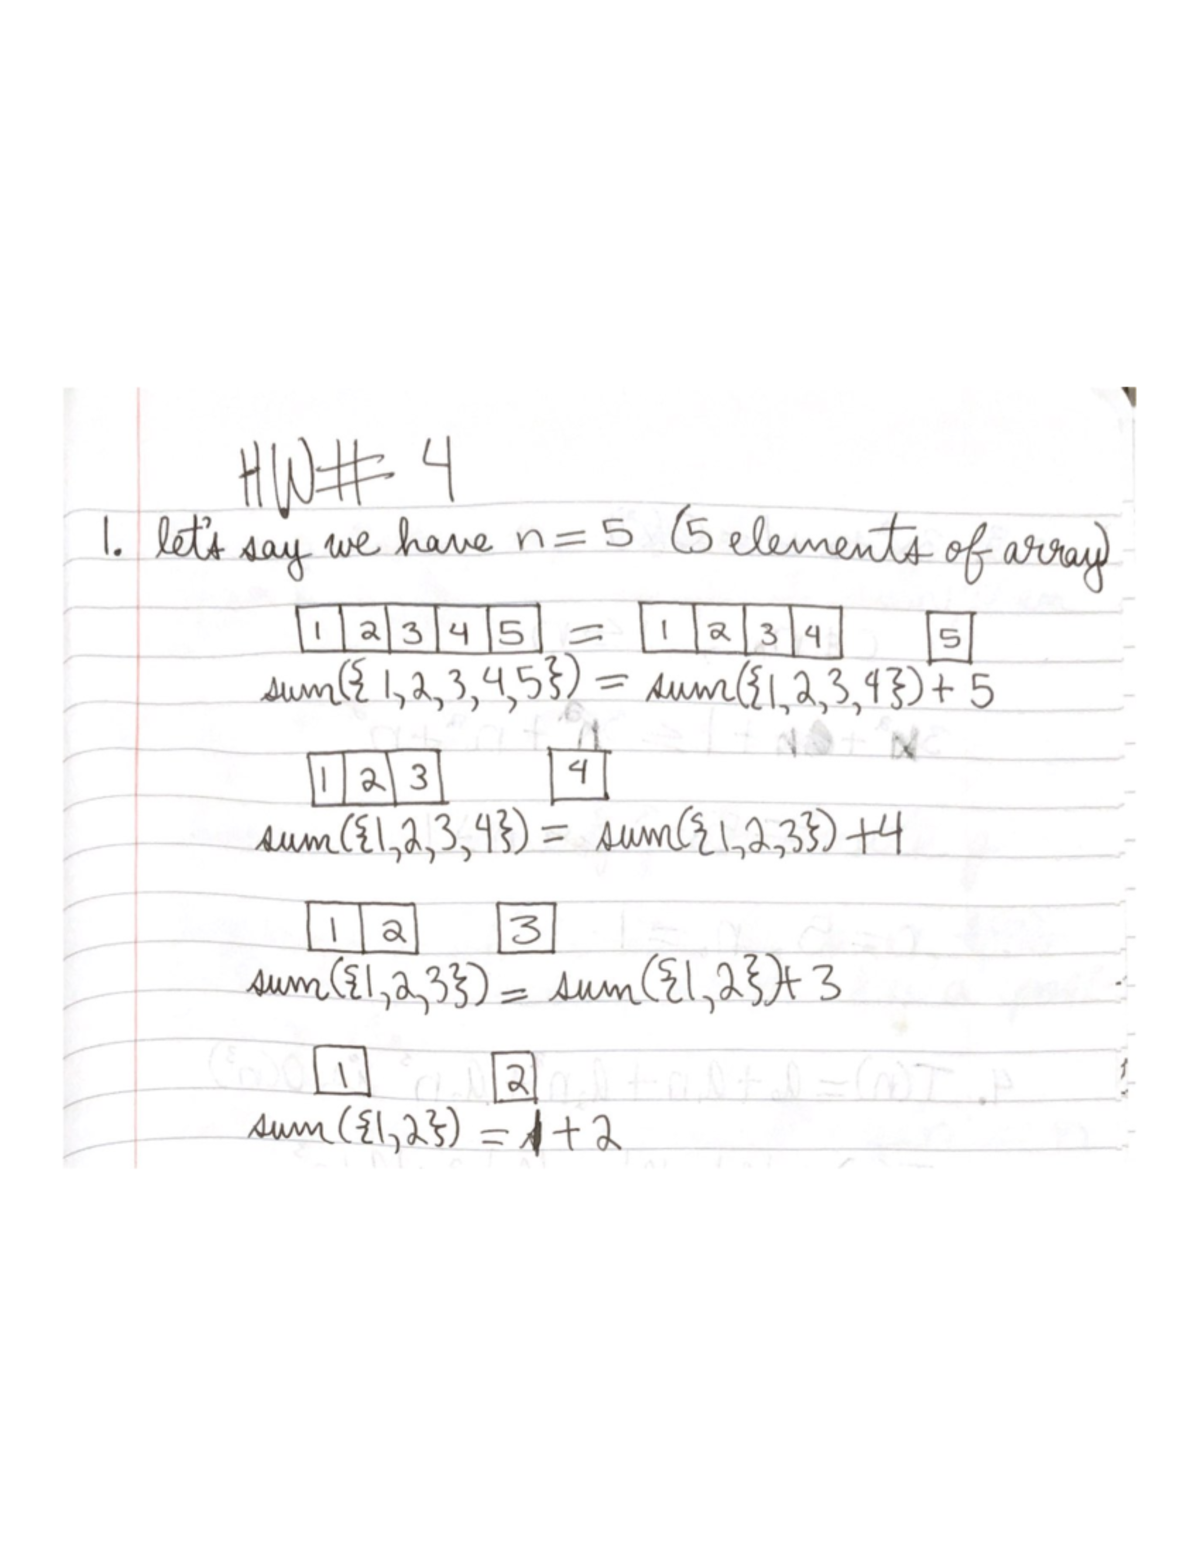 HW# 4
1. let's say we have n = 5 (5 elements of array)
1 2 3 4 5 = 1 2 3 4 5
sum({1,2,3,4,5}) = sum({1,2,3,4}) + 5
1 2 3 4
sum({1,2,3,4}) = sum({1,2,3}) + 4
1 2 3
sum({1,2,3}) = sum({1,2}) + 3
1 2
sum({1,2}) = 1 + 2